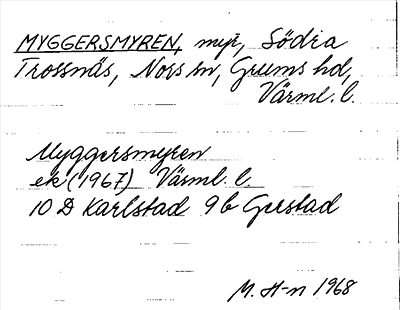 MYGGERSMYREN, myr, Södra
Trossnäs, Nors sn, Grums hd,
Värml. l.
Myggersmyren
ek (1967) Värml. l.
10 D Karlstad 9b Gerstad
M. H-n 1968